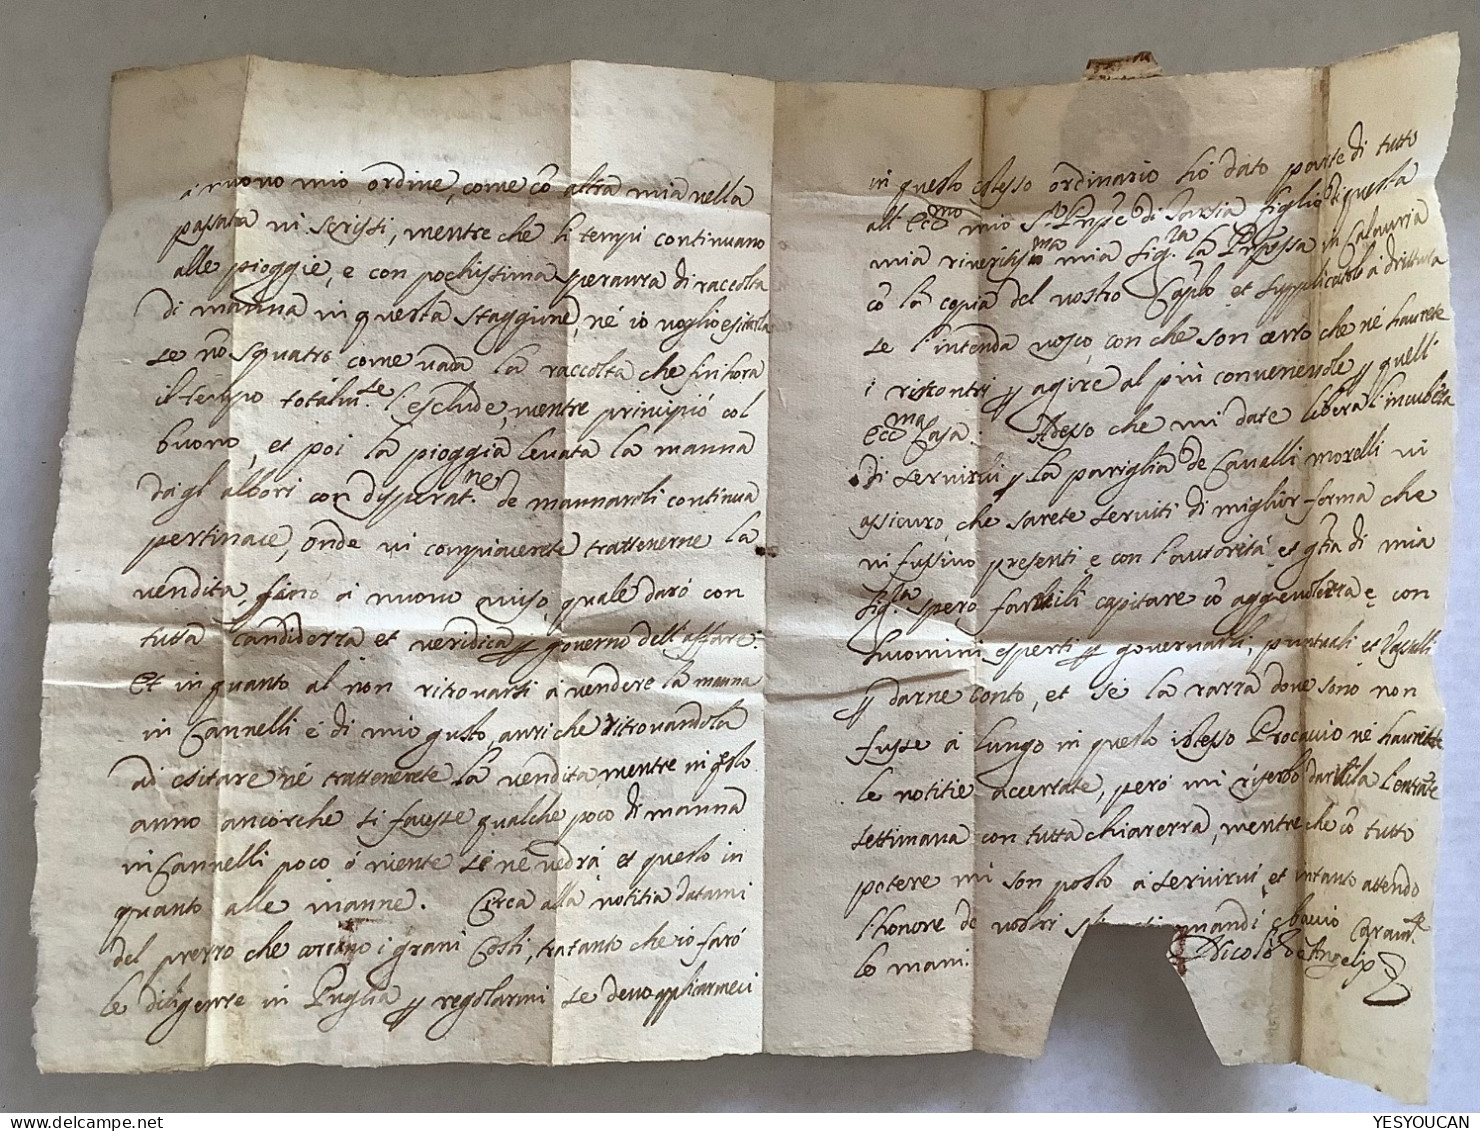 a nuovo mio ordine, come cō altra mia nella
passata vi scrissi, mentre che li tempi continuano
alle pioggie, e con pochissima speranza di raccolta
di manna in questa staggione, né io voglio esitarla
se nō squatro come vada la raccolta che fin hora
il tempo totalm.te l'esclude, mentre principió col
buono, et poi la pioggia levata la manna
dagl'albori con disperat.ne de mannaroli continua
pertinace, onde vi compiacerete trattenerne la
vendita, fino á nuovo aviso, quale daró con
tutta candidezza et veridica ꝑ governo dell'affare.
Et in quanto al non ritrovarsi á vendere la manna
in Cannelli é di mio gusto, anzi che ritrovandola
ad esitare né trattenerete la vendita, mentre in q̄sto
anno ancorche si facesse qualche poco di manna
in Cannelli poco ó niente se né vedrá, et questo in
quanto alle manne. Cerca alla notitia datami
del prezzo che corrono i grani Costi, tratanto che io faró
le diligenze in Puglia ꝑ regolarmi se devo applicarmeci
in questo istesso ordinario hó dato parte di tutto
all'Ecc.mo mio S.r Prnp̄e di figlio di questa
mia riveritiss.ma mia Sig.ra la Prnp̄ssa in Calauria
cō la copia del vostro Cap̄lo et supplicatolo á drittura
se l'intenda vosco, con che son certo che né haurete
i riscontri ꝑ agire al piú conveniende ꝑ quell'
Ecc.ma Casa. Adesso che mi date libera l'incubēza
di servirvi ꝑ la pariglia de Cavalli morelli vi
assicuro, che sarete serviti di miglior forma che
vi fussivo presenti e con l'autoritá et gr̄a di mia
Sig.ra spero farvili capitare cō aggevolezza e con
huomini esperti ꝑ governarli, puntuali et Vassalli
ꝑ darne conto, et se la razza dove sono non
fusse á lungo in questo istesso Procaccio né haurete
le notitie accertate, peró mi riserbo darvila l'entrāte
settimana con tutta chiarezza, mentre che cō tutto
potere mi son posto á servirvi, et intanto attendo
l'honore de vostri comandi, é bacio Caram.te
le mani.
Nicoló de Angelis
YESYOUCAN